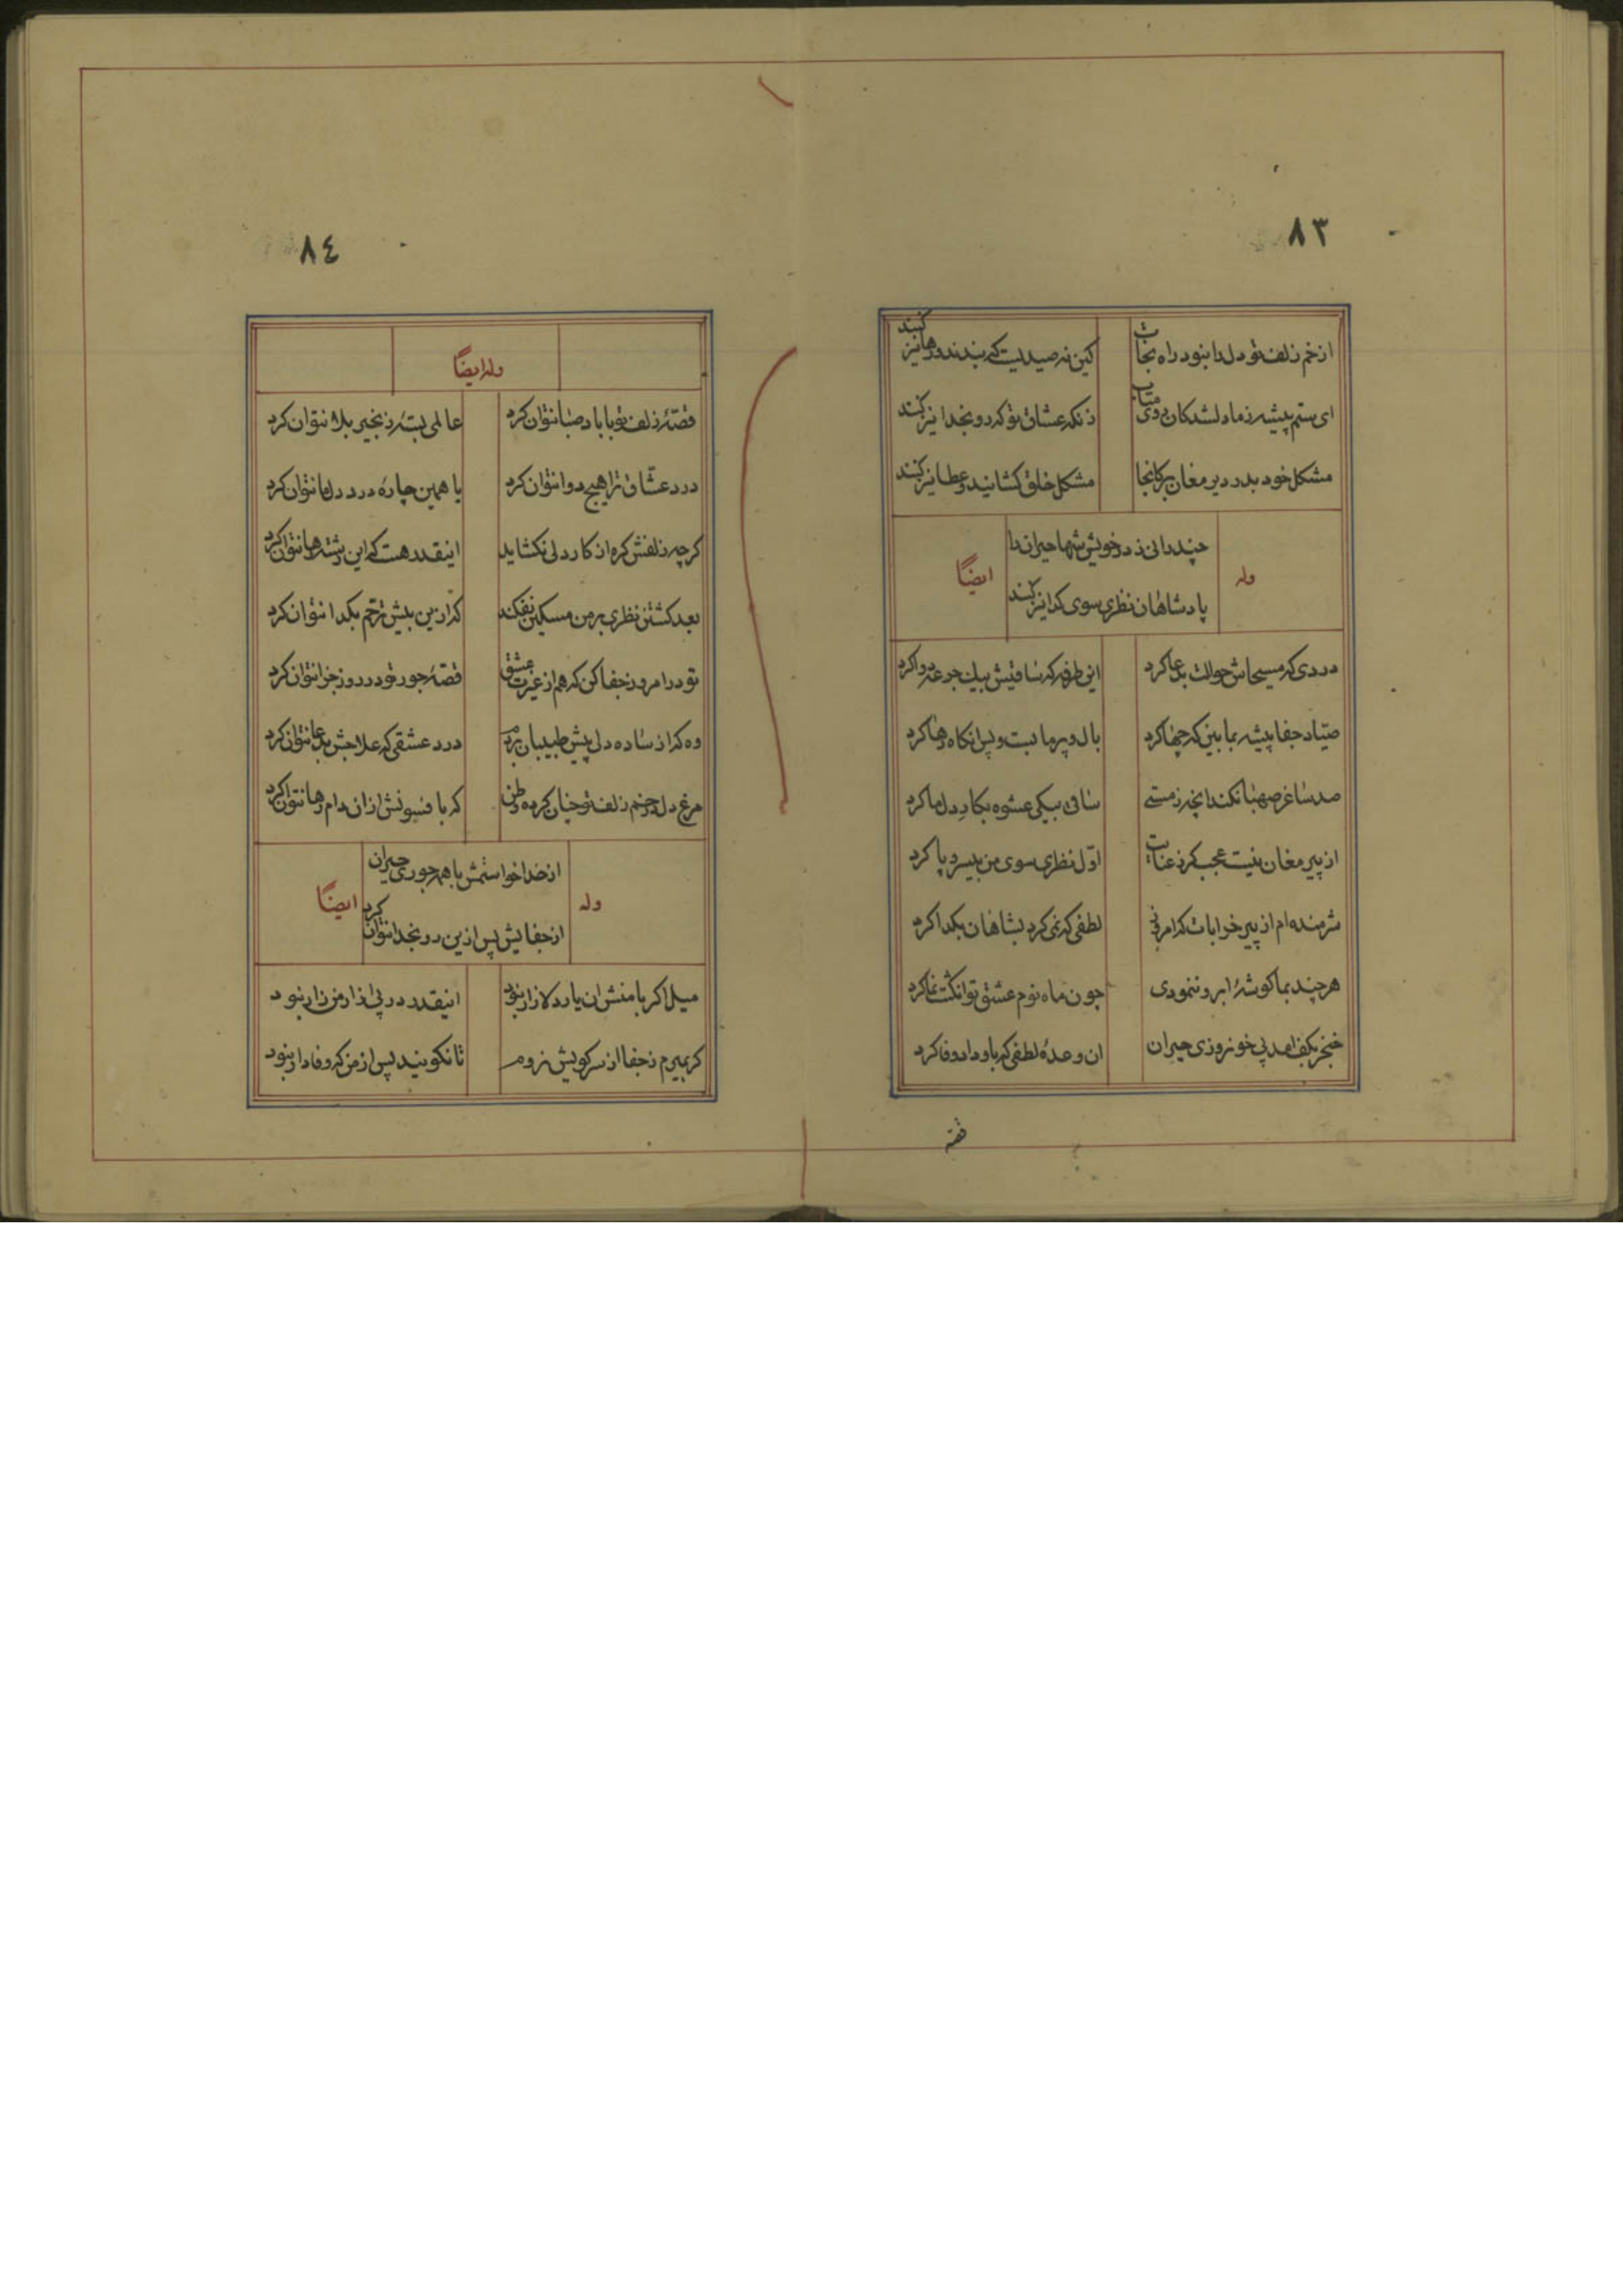 ٨٣
از خم زلف تو دل را نبود راه نجات
کین نه صیدیست که بندند و رها نیز کنند
ای ستم پیشه ز ما دلشدکان روی متاب
زنکه عشاق تو که رو بخدا نیز کنند
مشکل خود بدر دیر مغان بر کانجا
مشکل خلق کشایند و عطا نیز کنند
وله
چند رانی ز در خویش شها حیران را
پادشاهان نظری سوی کدا نیز کنند
ایضاً
دردی که مسیحاش حوالت بدعا کرد
این طرفه که ساقیش بیک جرعه دوا کرد
صیاد جفا پیشه بما بین که چها کرد
بال و پر ما بست و پس انکاه رها کرد
صد ساغر صهبا نکند انچه ز مستی
ساقی بیکی عشوه بکار دل ما کرد
از پیر مغان نیست عجب کر ز عنایت
اول نظری سوی من بیسر و پا کرد
شرمنده ام از پیر خرابات که امروز
لطفی که نمی کرد بشاهان بکدا کرد
هر چند بما کوشهٔ ابرو ننمودی
چون ماه نوم عشق تو انکشت نما کرد
خنجر بکف امد پی خونریزی حیران
ان وعدهٔ لطفی که باو داد وفا کرد
قصه
٨٤
وله ایضاً
قصهٔ زلف تو با باد صبا نتوان کرد
عالمی بستهٔ زنجیر بلا نتوان کرد
درد عشاق ترا هیچ دوا نتوان کرد
یا همین چارهٔ درد دل ما نتوان کرد
کرچه زلفش کره از کار دلی نکشاید
اینقدر هست که این رشته رها نتوان کرد
بعد کشتن نظری بر من مسکین نفکند
که ازین بیش ترحم بکدا نتوان کرد
تو در امروز جفا کن که هم از غیرت عشق
قصهٔ جور تو در روز جزا نتوان کرد
وه که از ساده دل پیش طبیبان بردم
درد عشقی که علاجش بدعا نتوان کرد
مرغ دل در خم زلف تو چنان کرده وطن
که بافسونش ازان دام رها نتوان کرد
وله
از خدا خواستمش با همه جوری حیران
از جفایش پس ازین رو بخدا نتوان کرد
ایضاً
میل اکر با منش ان یار دلازار نبود
اینقدر در پی ازار من زار نبود
کر بمیرم ز جفا از سر کویش نروم
تا نکویند پس از من که وفادار نبود